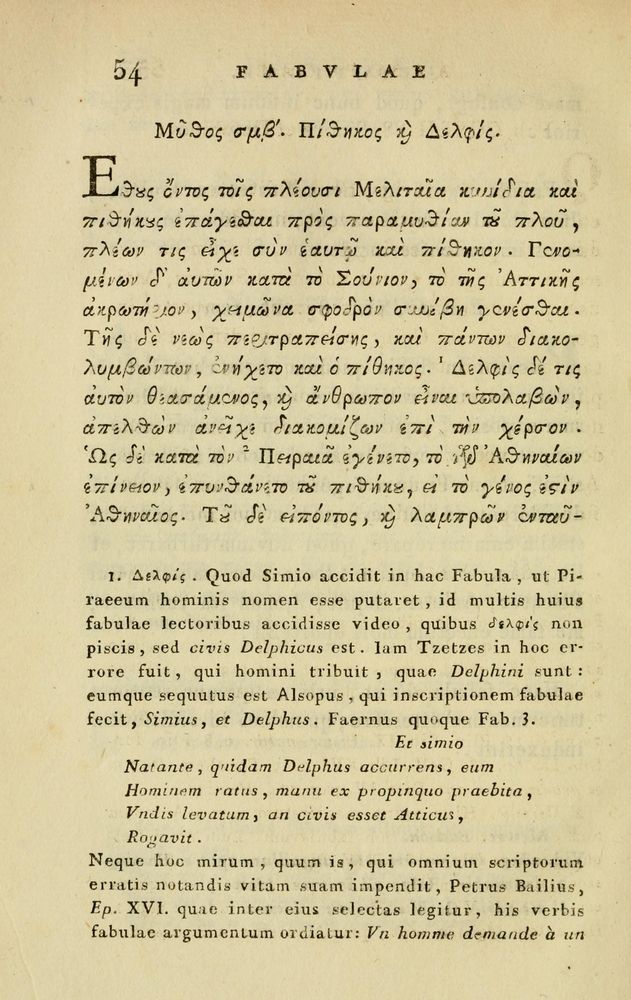 54 FABVLAE
Μῦθος σμβ΄. Πίθηκος ϗ Δελφίς.
Ἔθȣς ὄντος τοῖς πλέουσι Μελιταῖα κυνίδια καὶ
πιθήκȣς ἐπάγεσθαι πρὸς παραμυθίαν τȣ͂ πλοῦ,
πλέων τις εἶχε σὺν ἑαυτῷ καὶ πίθηκον. Γενο-
μένων δ᾽ αὐτῶν κατὰ τὸ Σούνιον, τὸ τῆς Ἀττικῆς
ἀκρωτήριον, χειμῶνα σφοδρὸν συνέβη γενέσθαι.
Τῆς δὲ νεὼς περιτραπείσης, καὶ πάντων διακο-
λυμβώντων, ἐνήχετο καὶ ὁ πίθηκος. 1 Δελφὶς δέ τις
αὐτὸν θεασάμενος, ϗ ἄνθρωπον εἶναι ὑπολαβὼν,
ἀπελθὼν ἀνεῖχε διακομίζων ἐπὶ τὴν χέρσον.
Ὡς δὲ κατὰ τὸν 2 Πειραιᾶ ἐγένετο, τὸ τῶν Ἀθηναίων
ἐπίνειον, ἐπυνθάνετο τȣ͂ πιθήκȣ, εἰ τὸ γένος ἐστὶν
Ἀθηναῖος. Τȣ͂ δὲ εἰπόντος, ϗ λαμπρῶν ἐνταῦ-
1. Δελφίς. Quod Simio accidit in hac Fabula, ut Pi-
raeeum hominis nomen esse putaret, id multis huius
fabulae lectoribus accidisse video, quibus δελφίς non
piscis, sed civis Delphicus est. Iam Tzetzes in hoc er-
rore fuit, qui homini tribuit, quae Delphini sunt:
eumque sequutus est Alsopus, qui inscriptionem fabulae
fecit, Simius, et Delphus. Faernus quoque Fab. 3.
Et simio
Natante, quidam Delphus accurrens, eum
Hominem ratus, manu ex propinquo praebita,
Vndis levatum, an civis esset Atticus,
Rogavit.
Neque hoc mirum, quum is, qui omnium scriptorum
erratis notandis vitam suam impendit, Petrus Bailius,
Ep. XVI. quae inter eius selectas legitur, his verbis
fabulae argumentum ordiatur: Vn homme demande à un